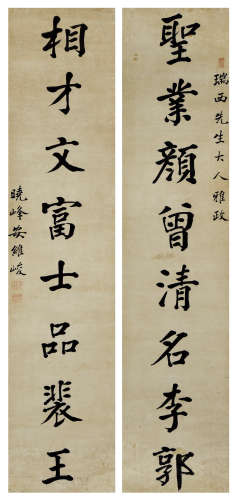 聖業顏曾清名李郭
瑞西先生大人雅政
相才文富士品裴王
曉峰安維峻